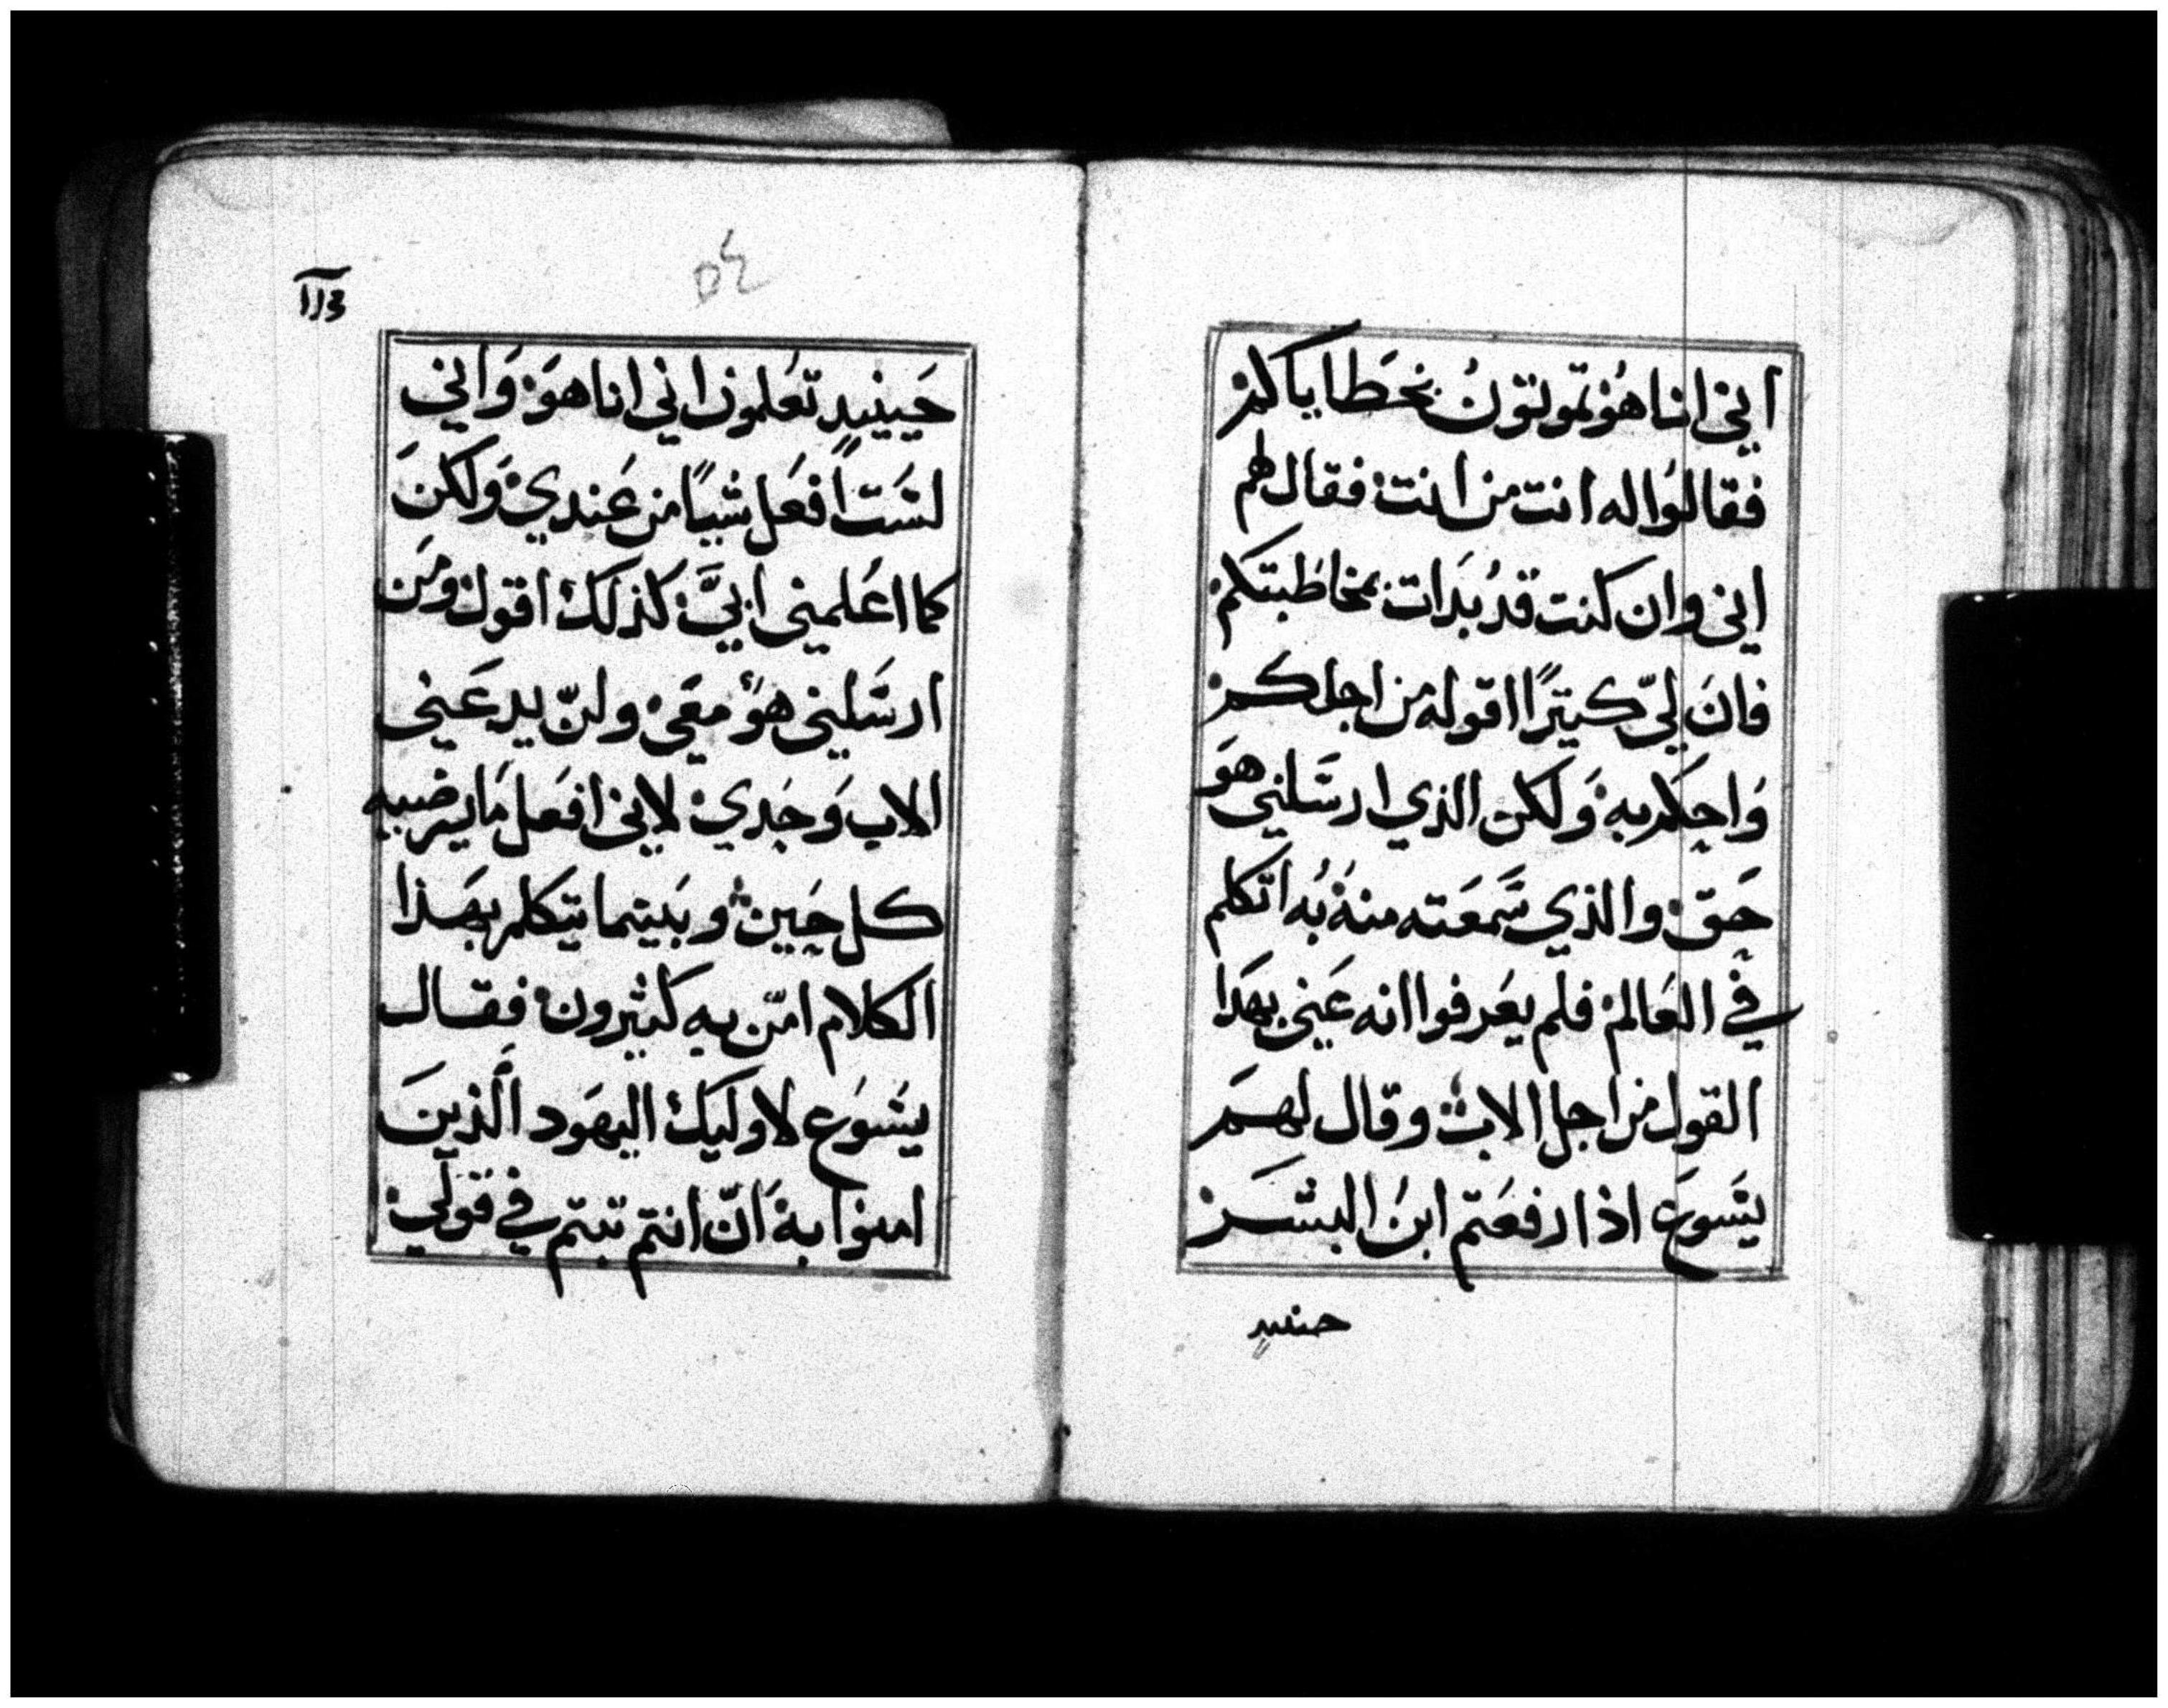 اني انا هو تموتون بخطاياكم
فقالوا له انت من انت فقال لهم
اني وان كنت قد بدات بمخاطبتكم
فان لي كتيرًا اقوله من اجلكم
وَاحكم به وَلكن الذي ارسَلني هوَ
حَق والذي سَمعَته منهُ بُه اتكلم
في العَالم فلم يعَرفوا انه عَنى بهَدا
القول من اجل الاب وقال لهم
يسَوعَ اذا رفعَتم ابنُ البشر
حينيدٍ
٥٤
حَينيدٍ تعَلمون اني انا هوَ وَاني
لسَت افعَل شيًا من عَندي وَلكنَ
كما اعُلمني ابيَّ كذلك اقول ومَن
ارسَلني هوَ معَي ولن يدعَني
الاب وَحَدي لاني افعَل مَا يرضيه
كل حَين وبَينما يتكلم بهَذا
الكلام امّن به كثيرون فقال
يسَوَع لاوليَك اليهَود الَّذينَ
امنوا به اَنّ انتم تبتم في قولي